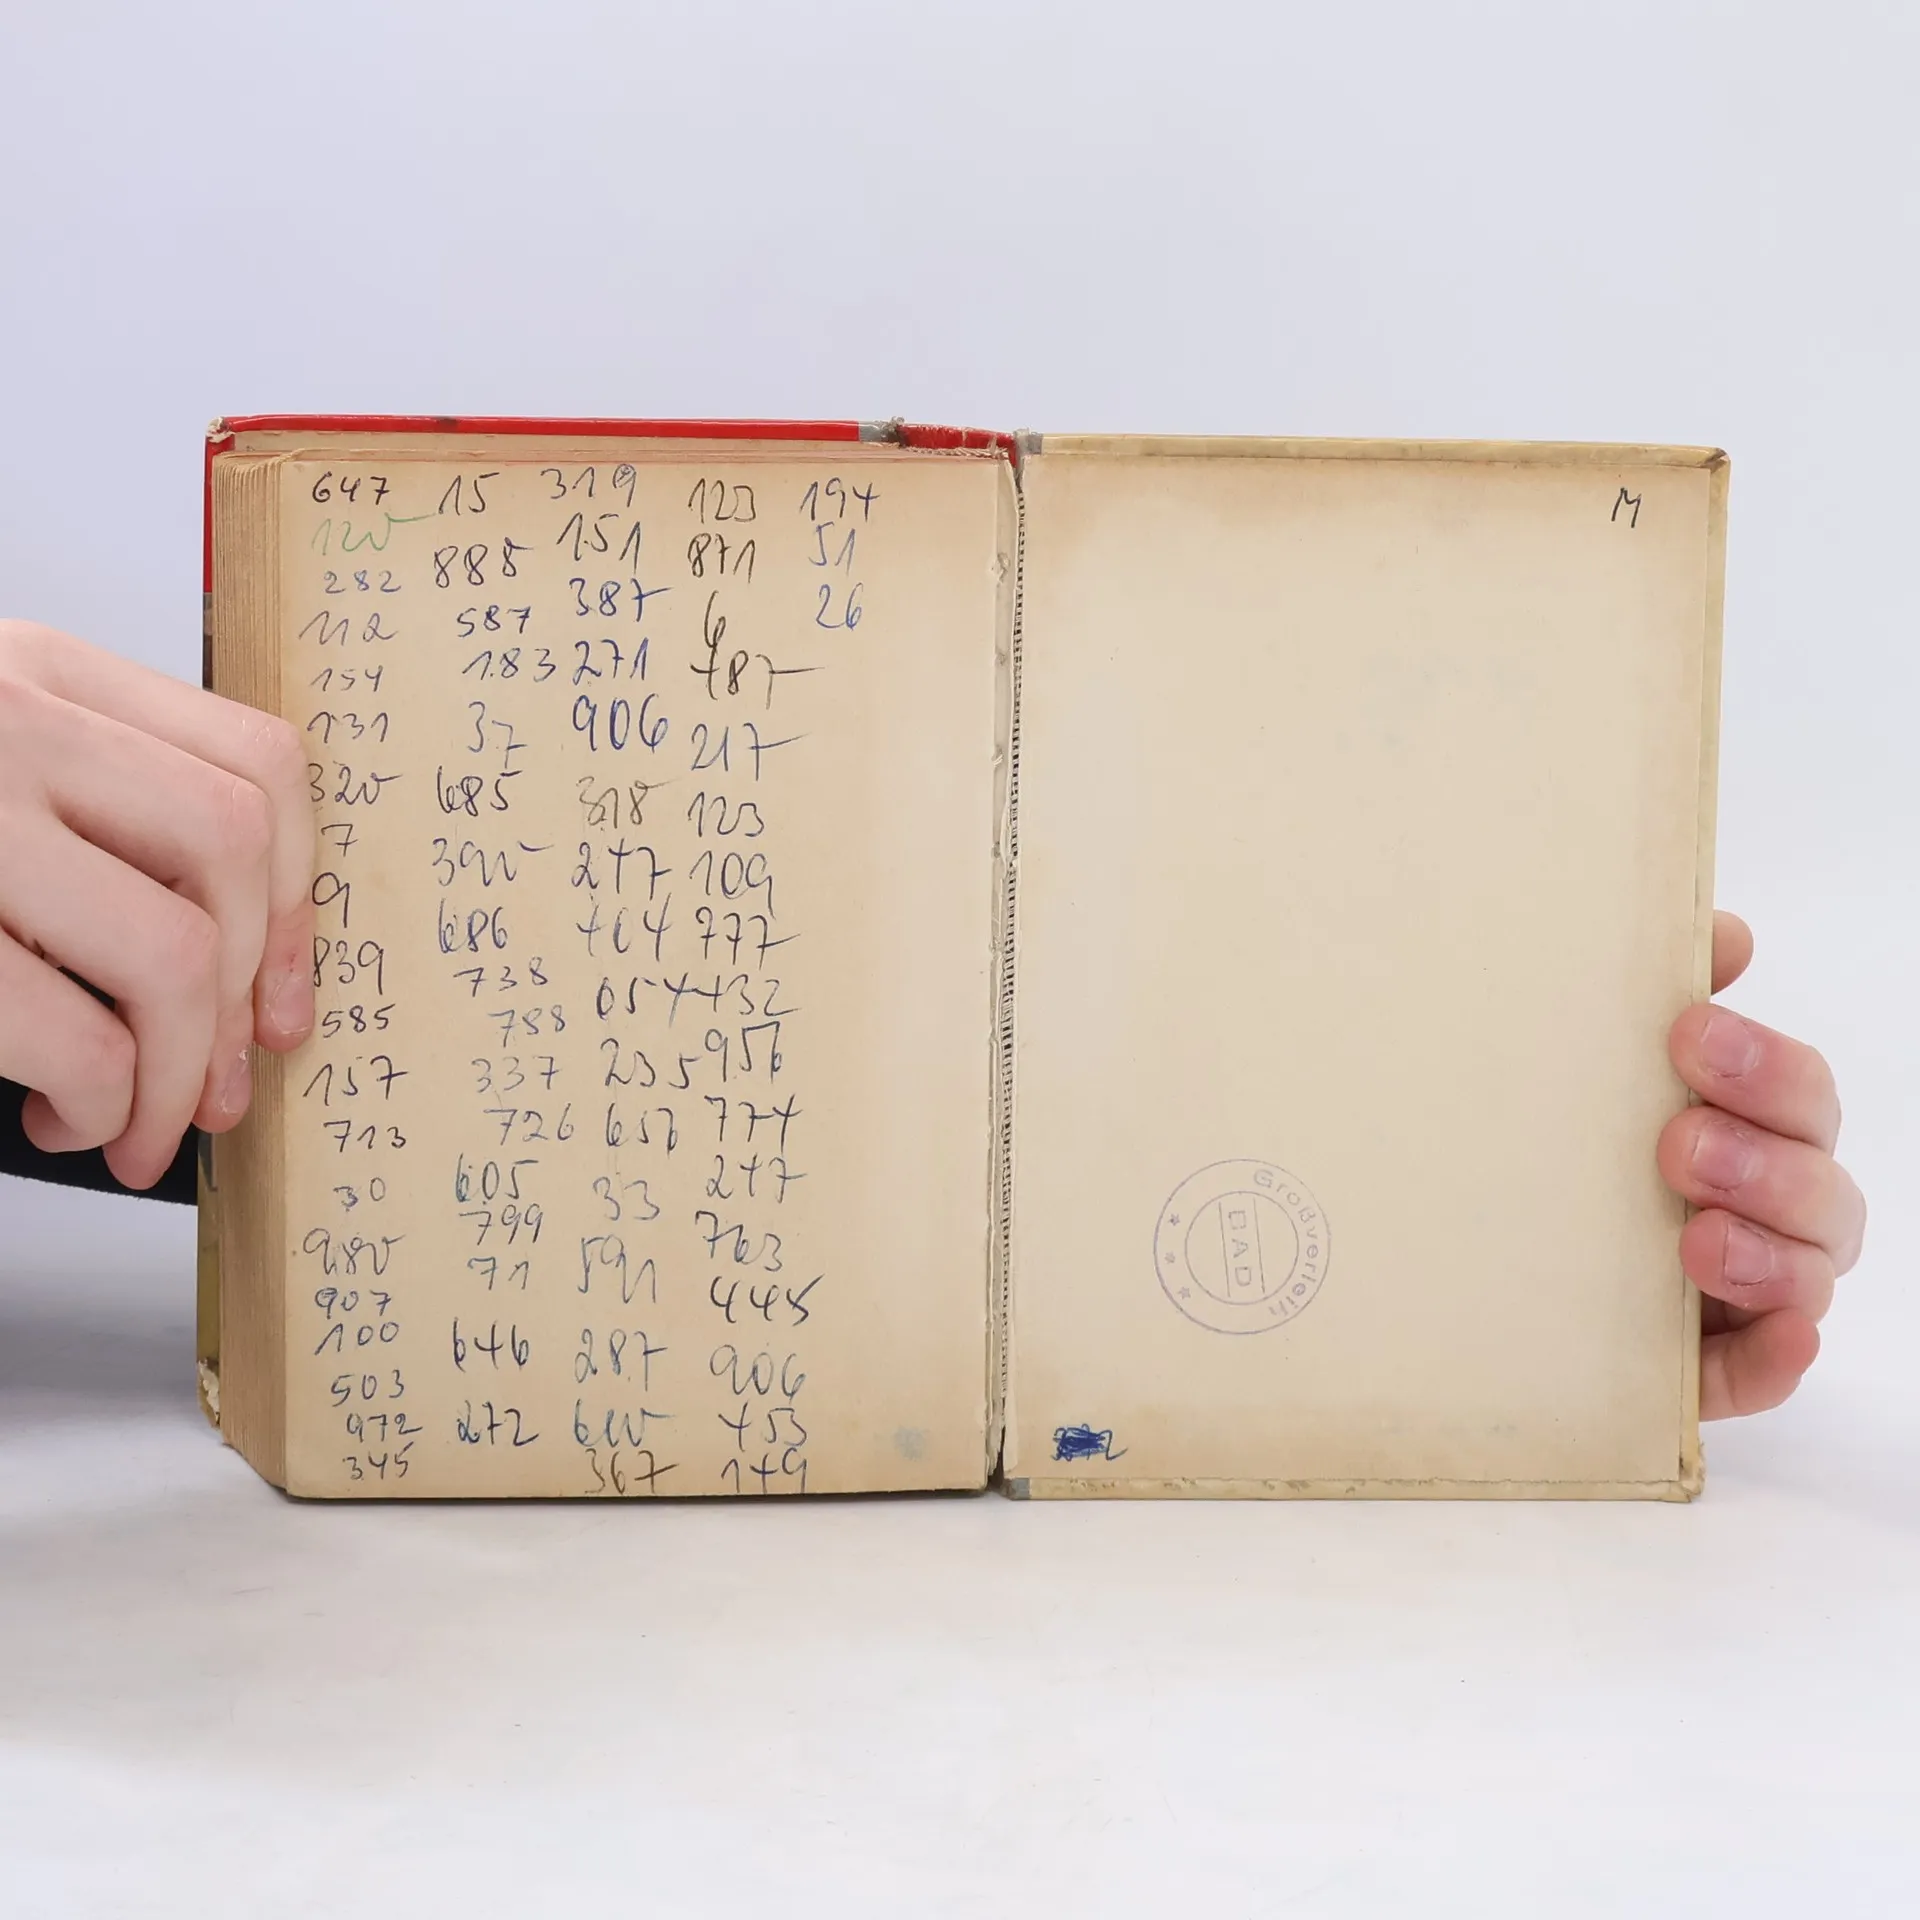 647 15 319 123 194
120 885 151 871 51
282 587 387 6 26
112 183 271 487
154 37 906 217
131 685 318 123
320 390 247 109
7 686 404 777
9 738 054 432
839 788 235 956
585 337 656 774
157 726 33 247
713 605 591 763
30 799 287 445
980 71 600 906
907 646 367 453
100 272 149
503
972
345
M
Großverleih
BAD